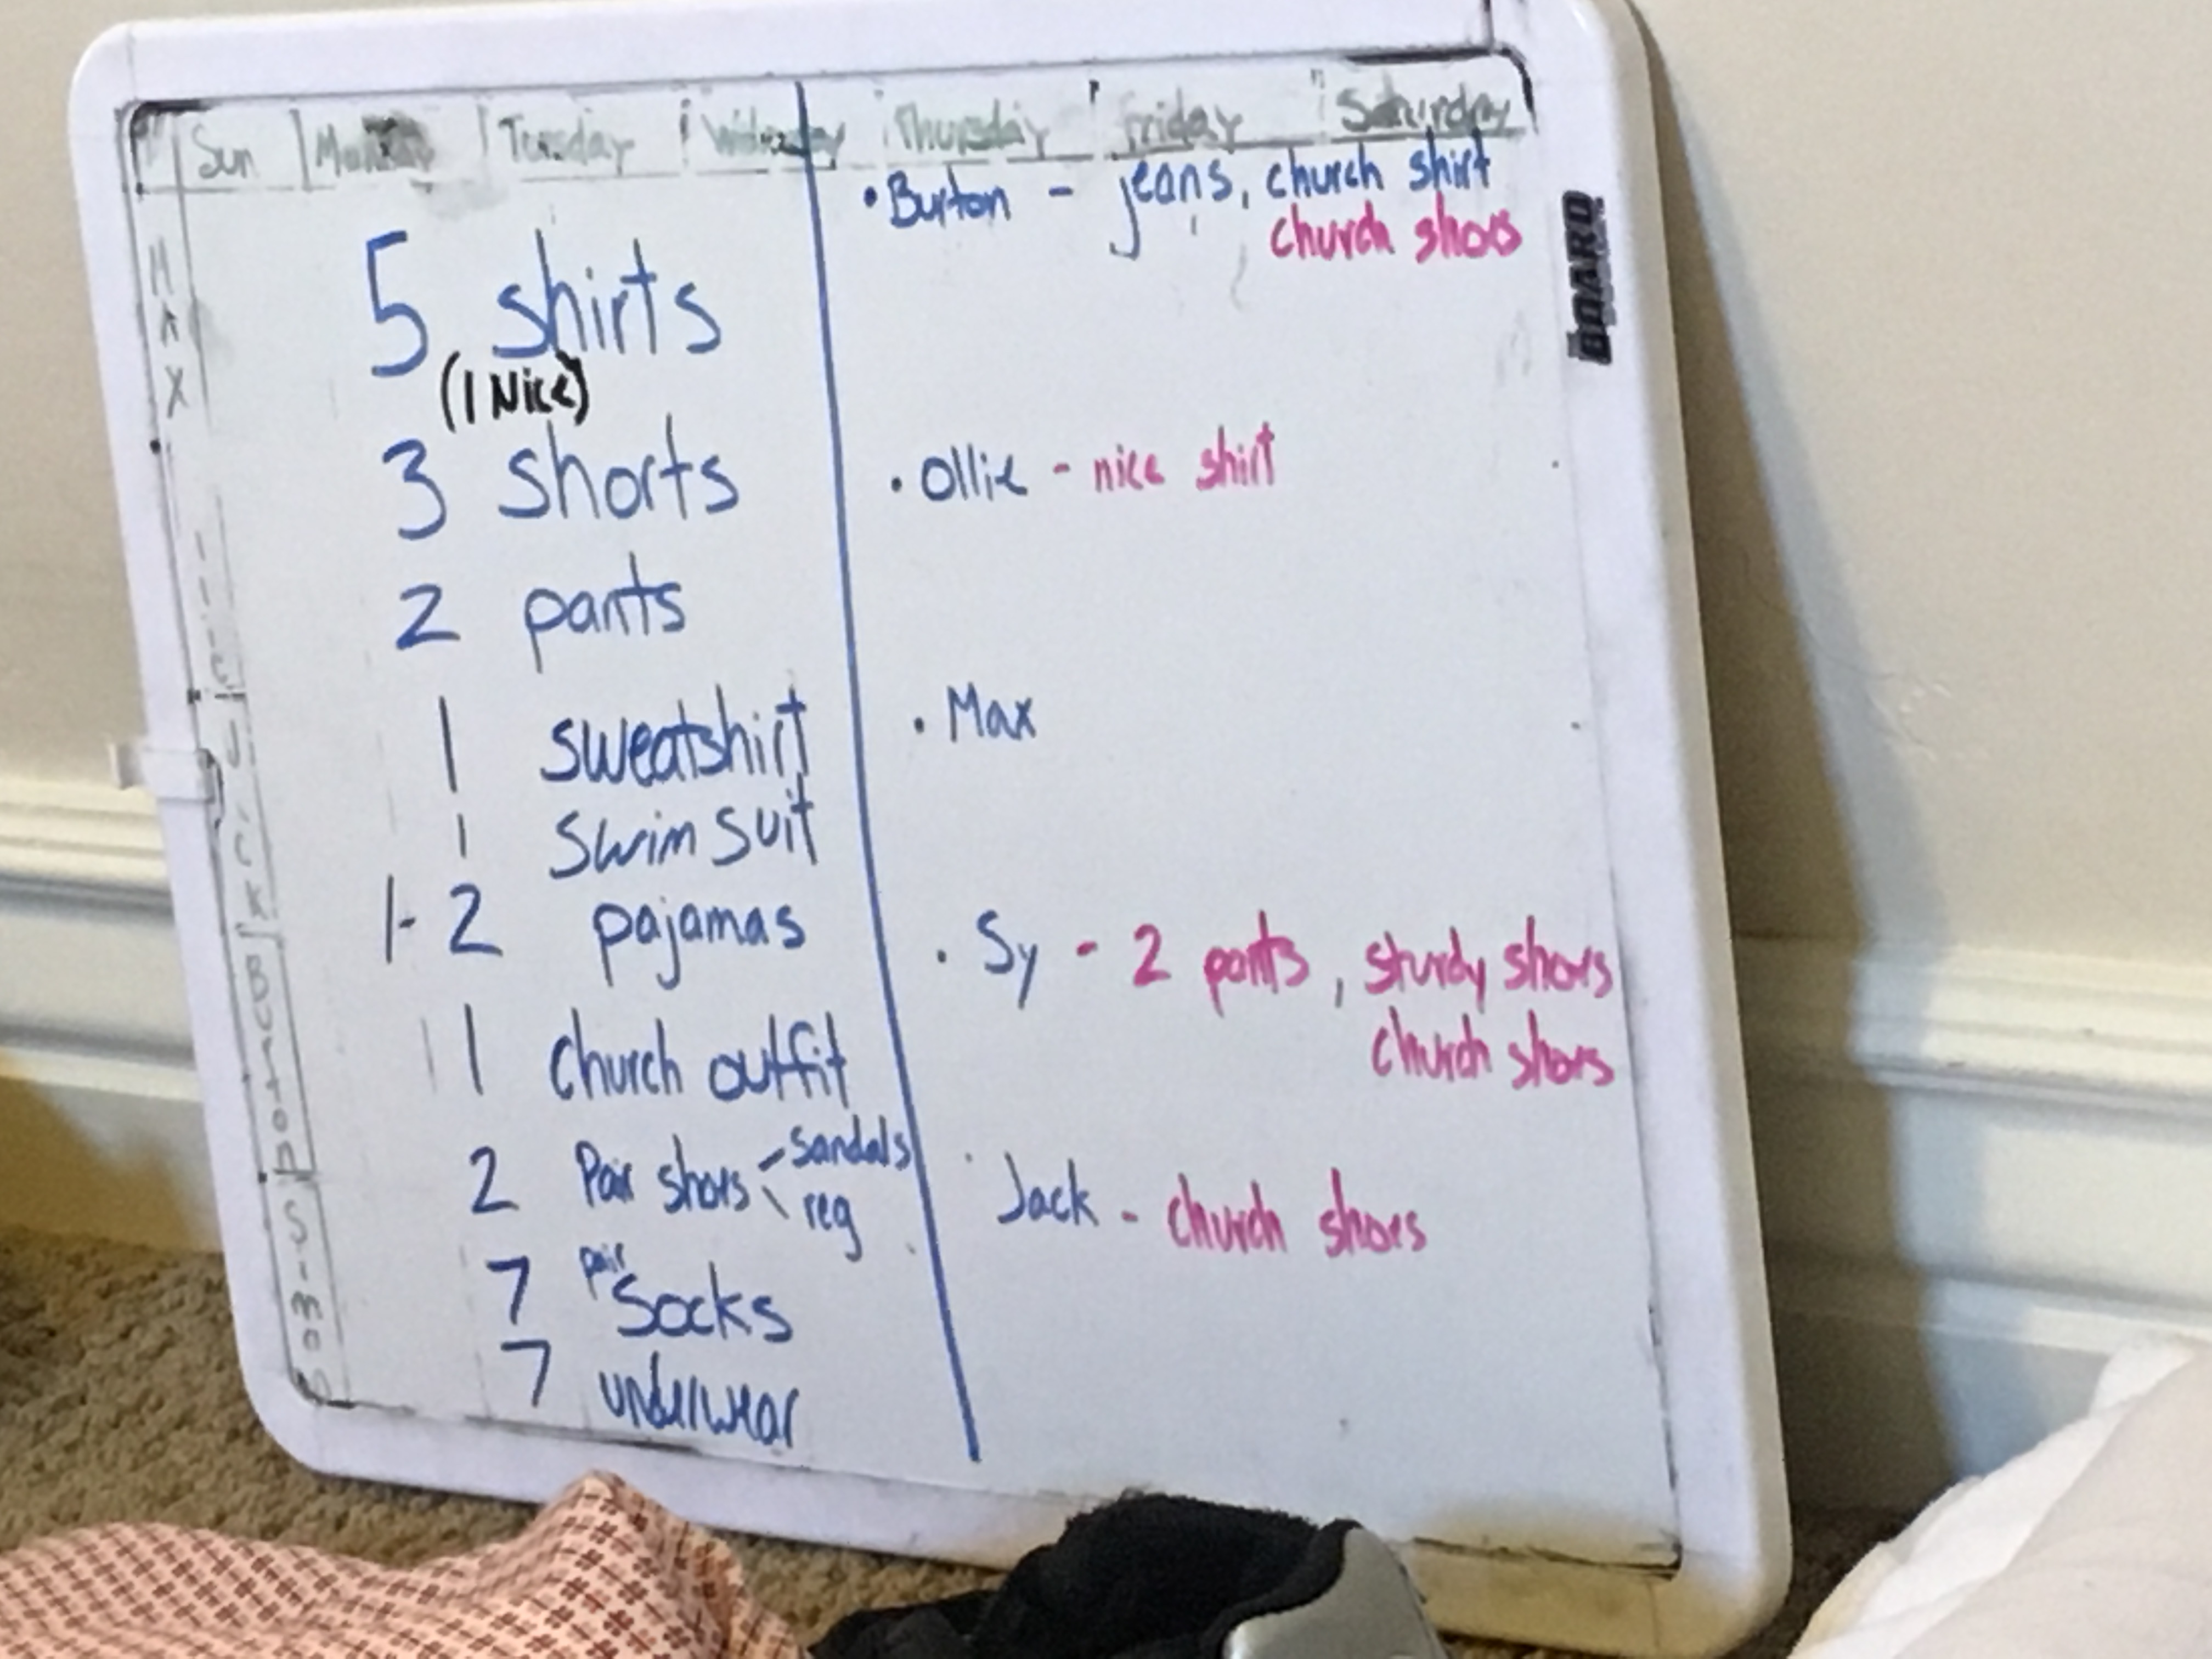 Sun Monday Tuesday Wednesday Thursday Friday Saturday
MAX
Ollie
Jack
Burton
Simon
5 shirts
(1 Nice)
3 shorts
2 pants
1 sweatshirt
1 swim suit
1-2 pajamas
1 church outfit
2 Pair shoes - sandals
- reg
7 pair socks
7 underwear
• Burton - jeans, church shirt
church shoes
• Ollie - nice shirt
• Max
• Sy - 2 pants, sturdy shoes
church shoes
• Jack - church shoes
BOARD